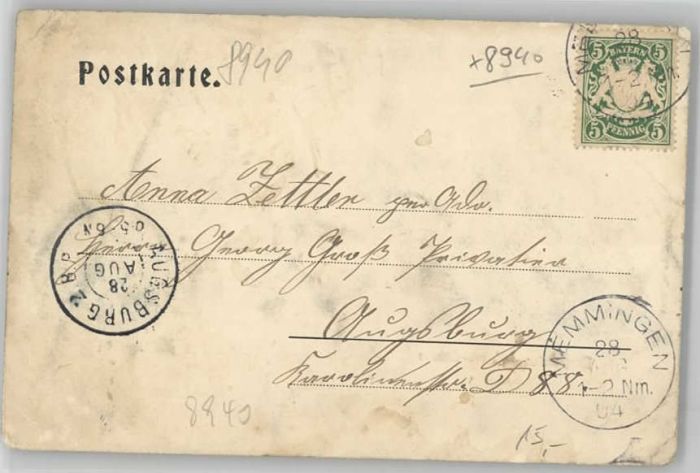 8940
x8940
Postkarte.
5 BAYERN 5
5 PFENNIG 5
28
1-2
Anna Zettler per Adr.
Herrn Georg Groß Privatier
Augsburg
Karolinenstr. D 88
AUGSBURG 2
28
AUG
MEMMINGEN
28
1-2 Nm.
04
8940
15,-